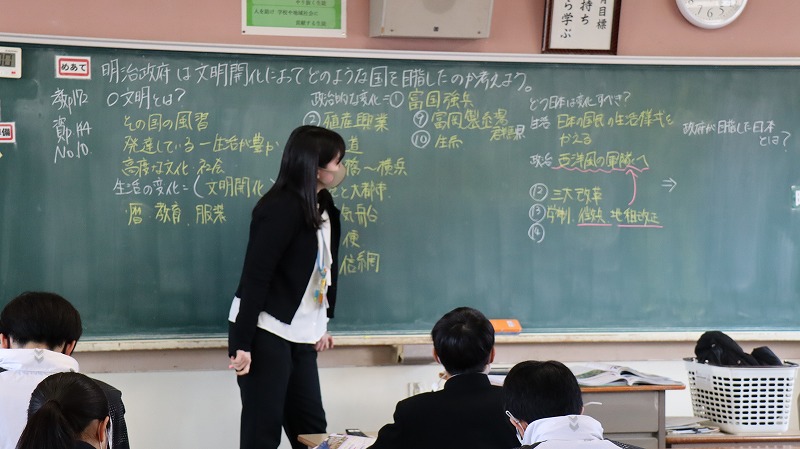 めあて
明治政府は文明開化によってどのような国を目指したのか考えよう。
教p172
資p114
No.10
○文明とは?
その国の風習
発達している→生活が豊か
高度な文化・社会
生活の変化=(文明開化
暦・教育・服装
政治的な変化=① 富国強兵
② 殖産興業
道
橋〜横浜
と大都市
気船
便
信網
⑨ 富岡製糸場
群馬県
⑩ 生糸
どう日本は変化すべき?
生活 日本の国民の生活様式を
かえる
政治 西洋風の軍隊へ
⑫ 三大改革
⑬ 学制、徴兵、地租改正
⑭
⇒
政府が目指した日本
とは?
月目標
持ち
ら学ぶ